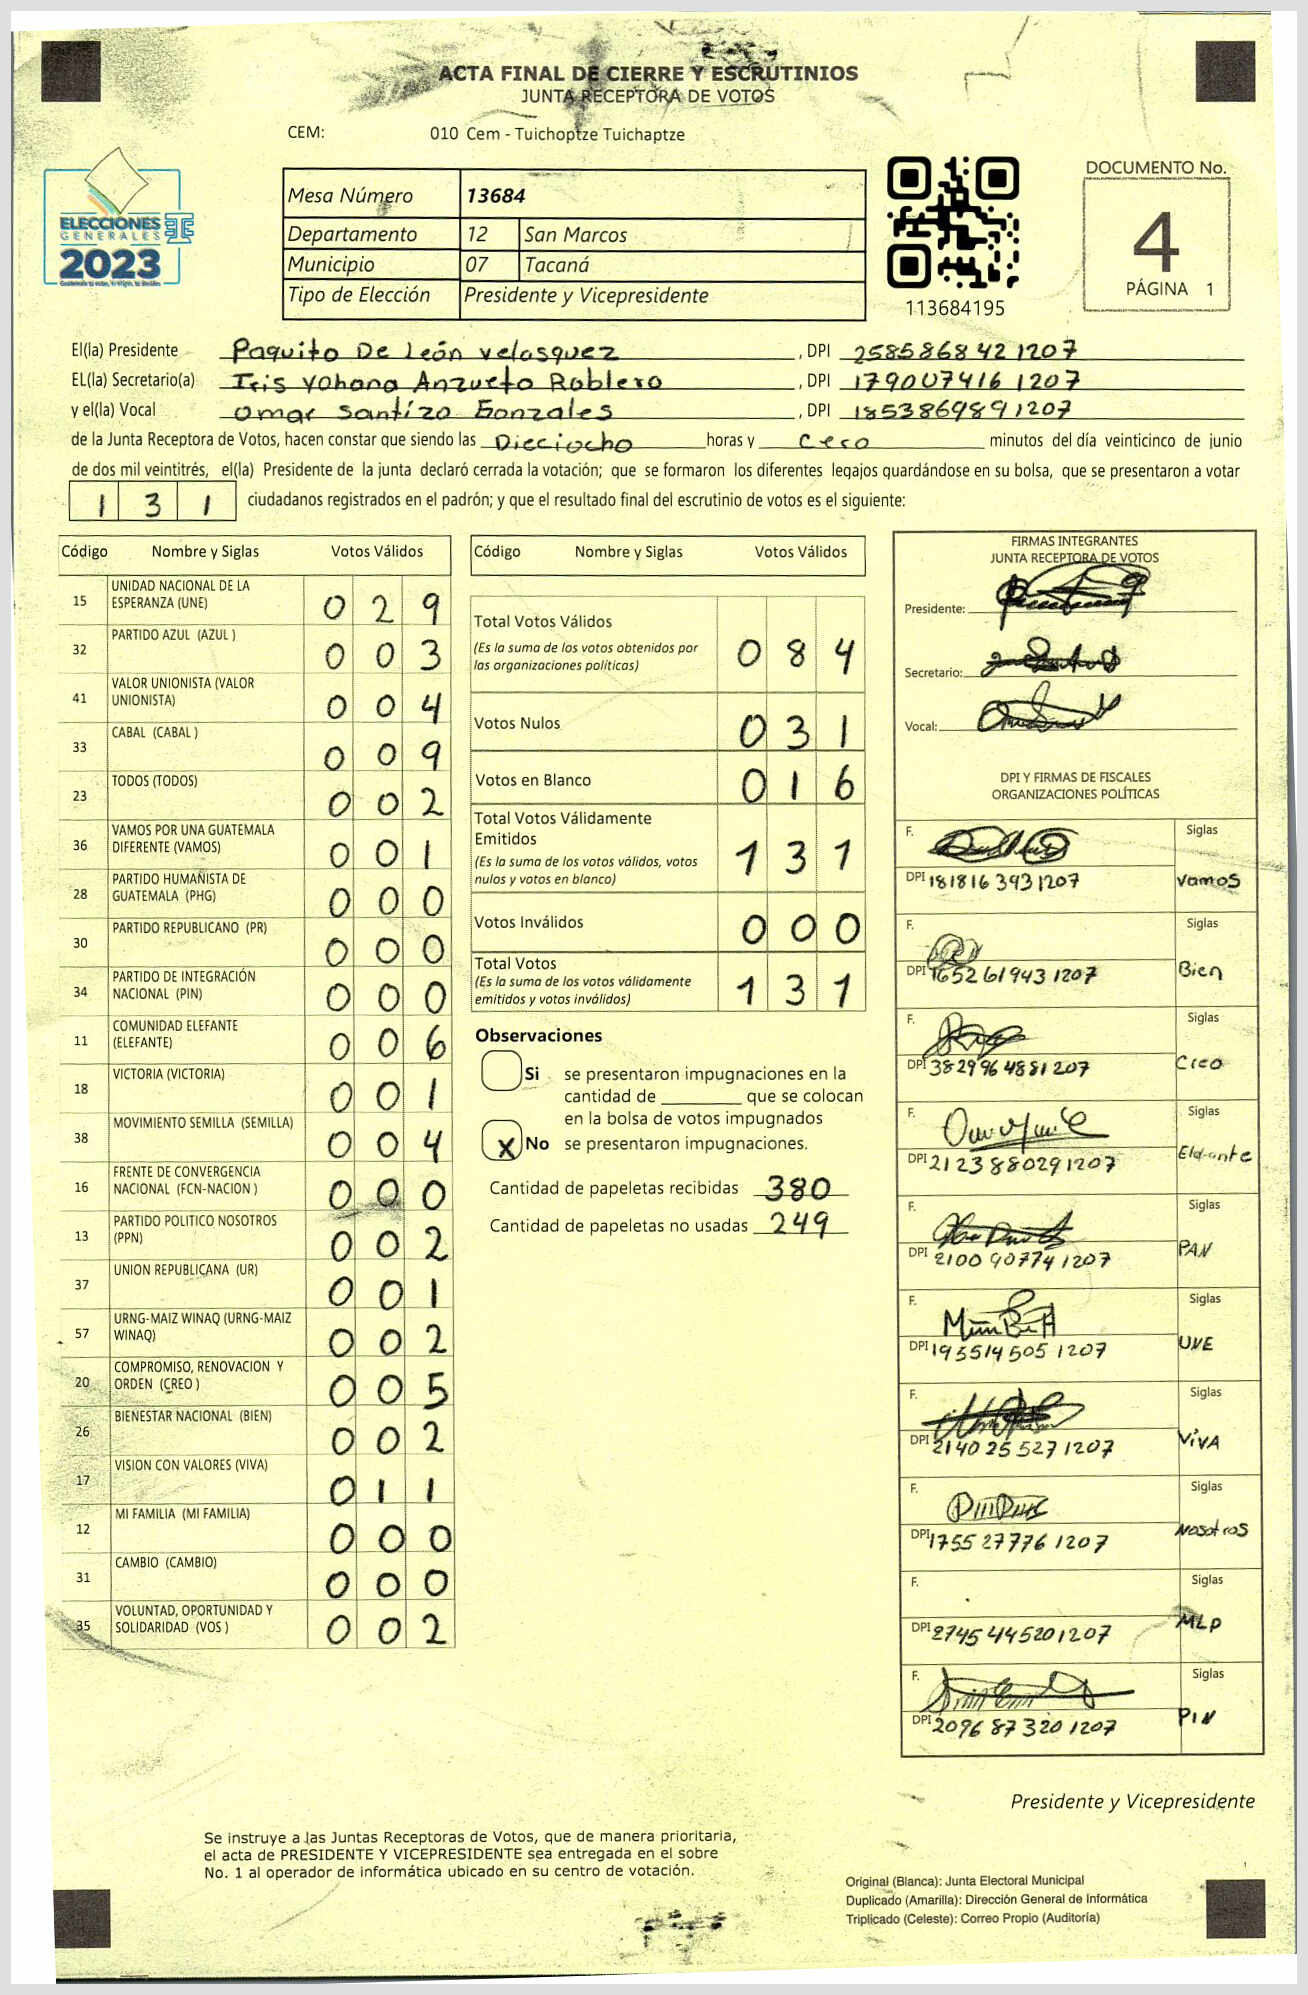 ACTA FINAL DE CIERRE Y ESCRUTINIOS
JUNTA RECEPTORA DE VOTOS
CEM: 010 Cem - Tuichoptze Tuichaptze
ELECCIONES
GENERALES
2023
Mesa Número 13684
Departamento 12 San Marcos
Municipio 07 Tacaná
Tipo de Elección Presidente y Vicepresidente
113684195
DOCUMENTO No.
4
PÁGINA 1
El(la) Presidente Paquito De León Velasquez, DPI 2585868421207
EL(la) Secretario(a) Iris Yohana Anzueto Roblero, DPI 1790074161207
y el(la) Vocal Omar Santizo Gonzales, DPI 1853869891207
de la Junta Receptora de Votos, hacen constar que siendo las Dieciocho horas y Cero minutos del día veinticinco de junio
de dos mil veintitrés, el(la) Presidente de la junta declaró cerrada la votación; que se formaron los diferentes legajos guardándose en su bolsa, que se presentaron a votar
131 ciudadanos registrados en el padrón; y que el resultado final del escrutinio de votos es el siguiente:
Código Nombre y Siglas Votos Válidos
15 UNIDAD NACIONAL DE LA ESPERANZA (UNE) 029
32 PARTIDO AZUL (AZUL ) 003
41 VALOR UNIONISTA (VALOR UNIONISTA) 004
33 CABAL (CABAL ) 009
23 TODOS (TODOS) 002
36 VAMOS POR UNA GUATEMALA DIFERENTE (VAMOS) 001
28 PARTIDO HUMANISTA DE GUATEMALA (PHG) 000
30 PARTIDO REPUBLICANO (PR) 000
34 PARTIDO DE INTEGRACIÓN NACIONAL (PIN) 000
11 COMUNIDAD ELEFANTE (ELEFANTE) 006
18 VICTORIA (VICTORIA) 001
38 MOVIMIENTO SEMILLA (SEMILLA) 004
16 FRENTE DE CONVERGENCIA NACIONAL (FCN-NACION ) 000
13 PARTIDO POLITICO NOSOTROS (PPN) 002
37 UNION REPUBLICANA (UR) 001
57 URNG-MAIZ WINAQ (URNG-MAIZ WINAQ) 002
20 COMPROMISO, RENOVACION Y ORDEN (CREO ) 005
26 BIENESTAR NACIONAL (BIEN) 002
17 VISION CON VALORES (VIVA) 011
12 MI FAMILIA (MI FAMILIA) 000
31 CAMBIO (CAMBIO) 000
35 VOLUNTAD, OPORTUNIDAD Y SOLIDARIDAD (VOS ) 002
Código Nombre y Siglas Votos Válidos
Total Votos Válidos 084
(Es la suma de los votos obtenidos por
las organizaciones políticas)
Votos Nulos 031
Votos en Blanco 016
Total Votos Válidamente
Emitidos 131
(Es la suma de los votos válidos, votos
nulos y votos en blanco)
Votos Inválidos 000
Total Votos 131
(Es la suma de los votos válidamente
emitidos y votos inválidos)
Observaciones
Si se presentaron impugnaciones en la
cantidad de ________ que se colocan
en la bolsa de votos impugnados
X No se presentaron impugnaciones.
Cantidad de papeletas recibidas 380
Cantidad de papeletas no usadas 249
FIRMAS INTEGRANTES
JUNTA RECEPTORA DE VOTOS
Presidente:
Secretario:
Vocal:
DPI Y FIRMAS DE FISCALES
ORGANIZACIONES POLÍTICAS
F. Siglas
DPI 1818163931207 Vamos
F. Siglas
DPI 1652619431207 Bien
F. Siglas
DPI 3829964881207 Creo
F. Siglas
DPI 2123880291207
F. Siglas
DPI 2100907741207 PAN
F. Siglas
DPI 1955145051207 UNE
F. Siglas
DPI 2140255271207 ViVA
F. Siglas
DPI 1755277761207 Nosotros
F. Siglas
DPI 2745445201207 MLP
F. Siglas
DPI 2096873201207 PIN
Presidente y Vicepresidente
Se instruye a las Juntas Receptoras de Votos, que de manera prioritaria,
el acta de PRESIDENTE Y VICEPRESIDENTE sea entregada en el sobre
No. 1 al operador de informática ubicado en su centro de votación.
Original (Blanca): Junta Electoral Municipal
Duplicado (Amarilla): Dirección General de Informática
Triplicado (Celeste): Correo Propio (Auditoría)